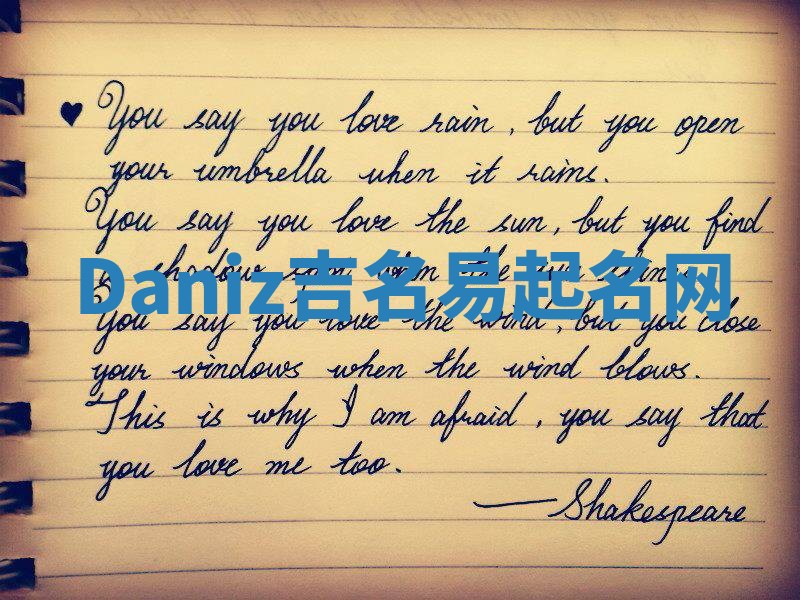 You say you love rain, but you open
your umbrella when it rains.
You say you love the sun, but you find
a shadow spot when the sun shines.
Daniz吉名易起名网
You say you love the wind, but you close
your windows when the wind blows.
This is why I am afraid, you say that
you love me too.
—Shakespeare